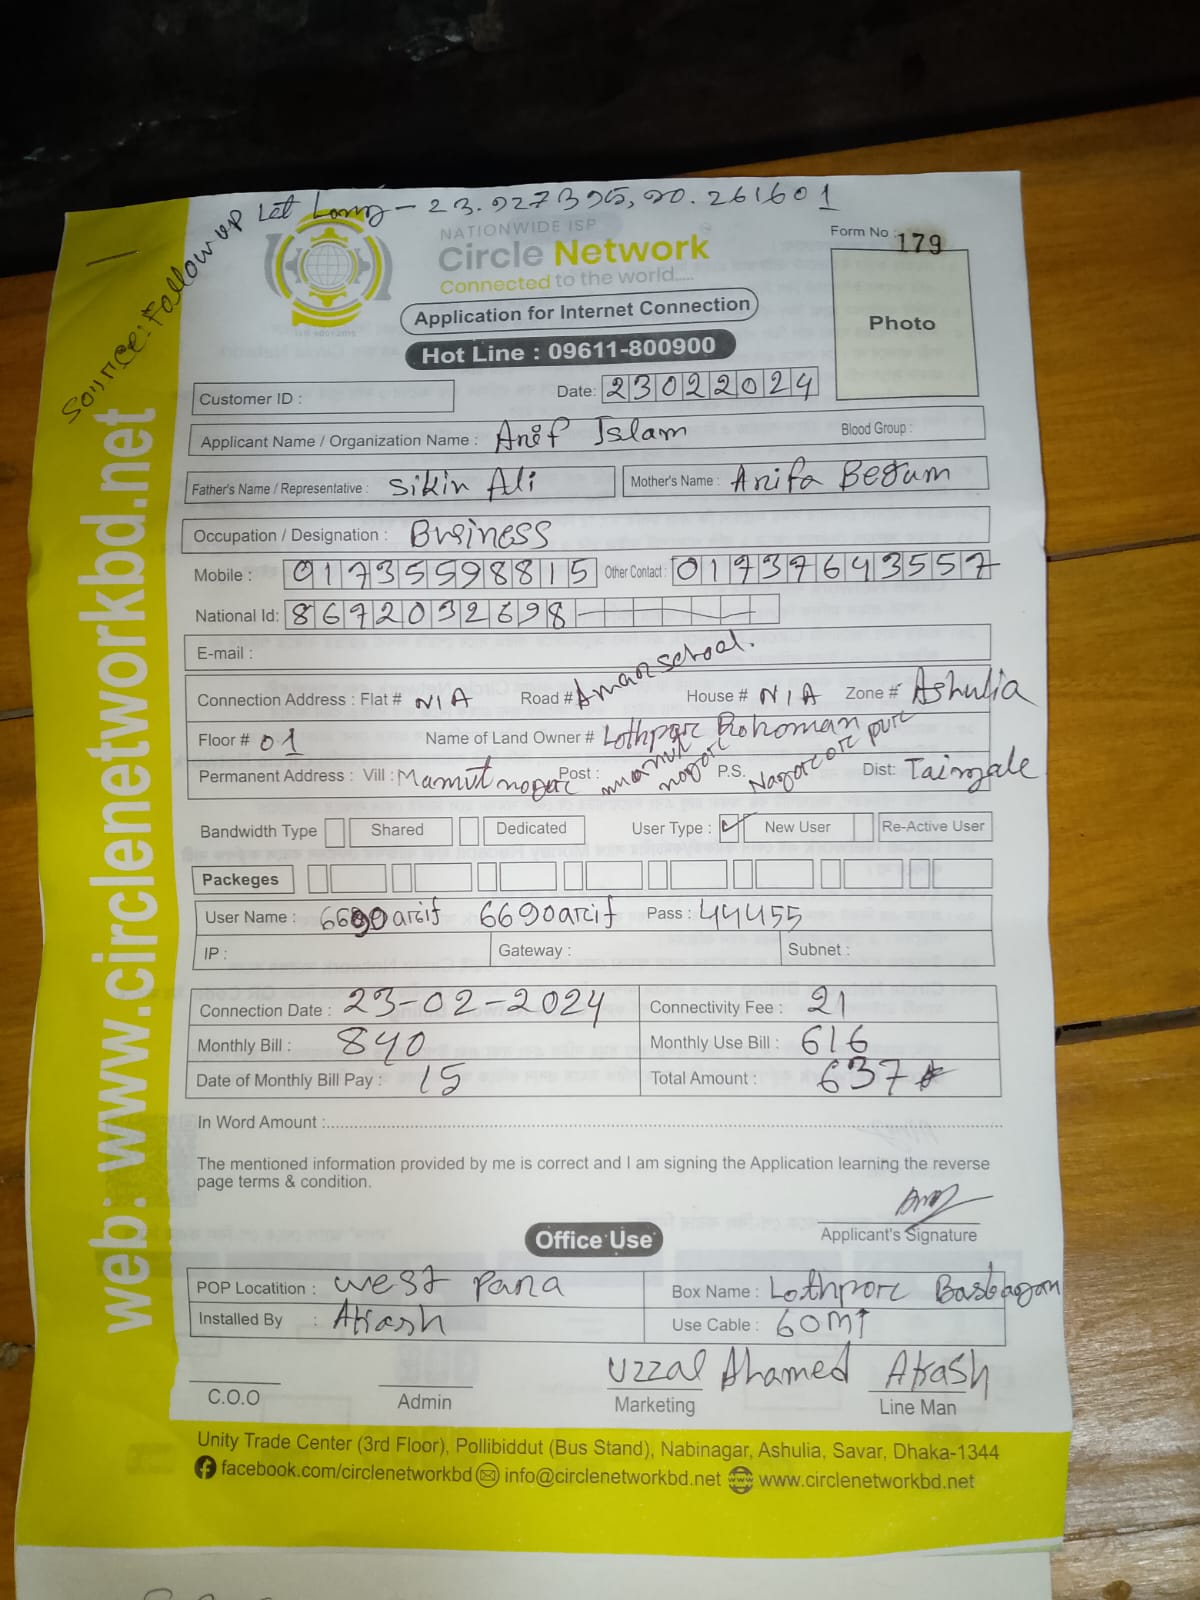 Source: Follow up Let Long - 23.927395, 90.261601
NATIONWIDE ISP
Circle Network
Connected to the world.....
Form No : 179
Photo
Application for Internet Connection
Hot Line : 09611-800900
Customer ID :
Date: 23022024
Applicant Name / Organization Name : Arif Islam Blood Group :
Father's Name / Representative : Sikin Ali Mother's Name : Arifa Begum
Occupation / Designation : Business
Mobile : 01735598815 Other Contact : 01737643557
National Id: 8672032698
E-mail :
Connection Address : Flat # N/A Road # Aman school. House # N/A Zone # Ashulia
Floor # 01 Name of Land Owner # Lothpor Rohoman
Permanent Address : Vill : Mamutnogor Post : mamut nogor P.S. Nagoror pur Dist: Taingale
Bandwidth Type Shared Dedicated User Type : ✓ New User Re-Active User
Packeges
User Name : 6690arif 6690arif Pass : 44455
IP : Gateway : Subnet :
Connection Date : 23-02-2024 Connectivity Fee : 21
Monthly Bill : 840 Monthly Use Bill : 616
Date of Monthly Bill Pay : 15 Total Amount : 637
In Word Amount :
The mentioned information provided by me is correct and I am signing the Application learning the reverse
page terms & condition.
Applicant's Signature
Office Use
POP Locatition : West Para Box Name : Lothpor Basbagan
Installed By : Akash Use Cable : 60mt
Uzzal Ahamed Akash
C.O.O Admin Marketing Line Man
Unity Trade Center (3rd Floor), Pollibiddut (Bus Stand), Nabinagar, Ashulia, Savar, Dhaka-1344
facebook.com/circlenetworkbd info@circlenetworkbd.net www.circlenetworkbd.net
web: www.circlenetworkbd.net